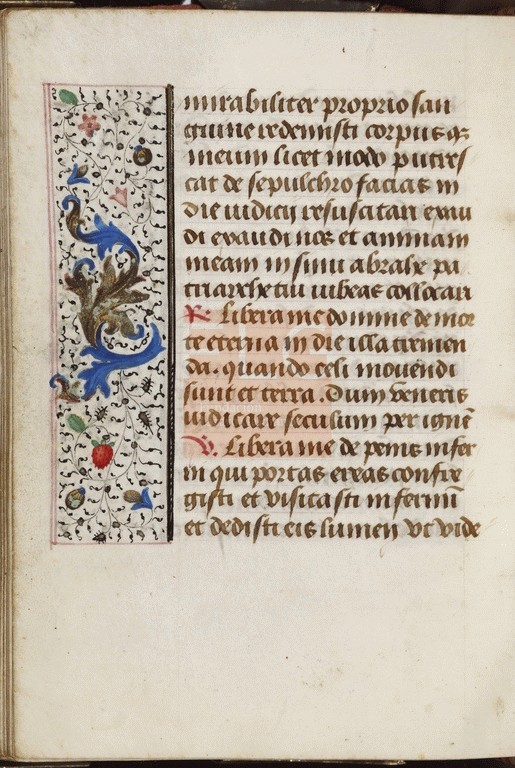 mirabiliter proprio san
guine redemisti corpusqꝫ
meum licet modo putres
cat de sepulchro facias in
die iudicij resuscitari exau
di exaudi nos et animam
meam in sinu abrahe pa
triarche tui iubeas collocari
R. Libera me domine de mor
te eterna in die illa tremen
da. quando celi mouēndi
sunt et terra. Dum veneris
iudicare seculum per ignē
V. Libera me de penis infer
ni qui portas ereas confre
gisti et visitasti infernū
et dedisti eis lumen vt vide